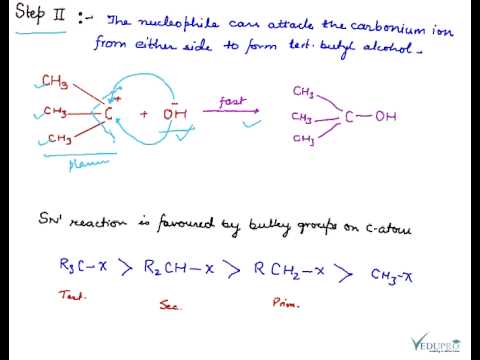 Step II :- The nucleophile can attack the carbonium ion
from either side to form tert. butyl alcohol.
CH₃
CH₃ C⁺ + ŌH fast CH₃ CH₃ CH₃ C-OH
CH₃
planar
SN¹ reaction is favoured by bulky groups on C-atom
R₃C-X > R₂CH-X > R CH₂-X > CH₃-X
Tert. Sec. Prim.
VEDUPRO